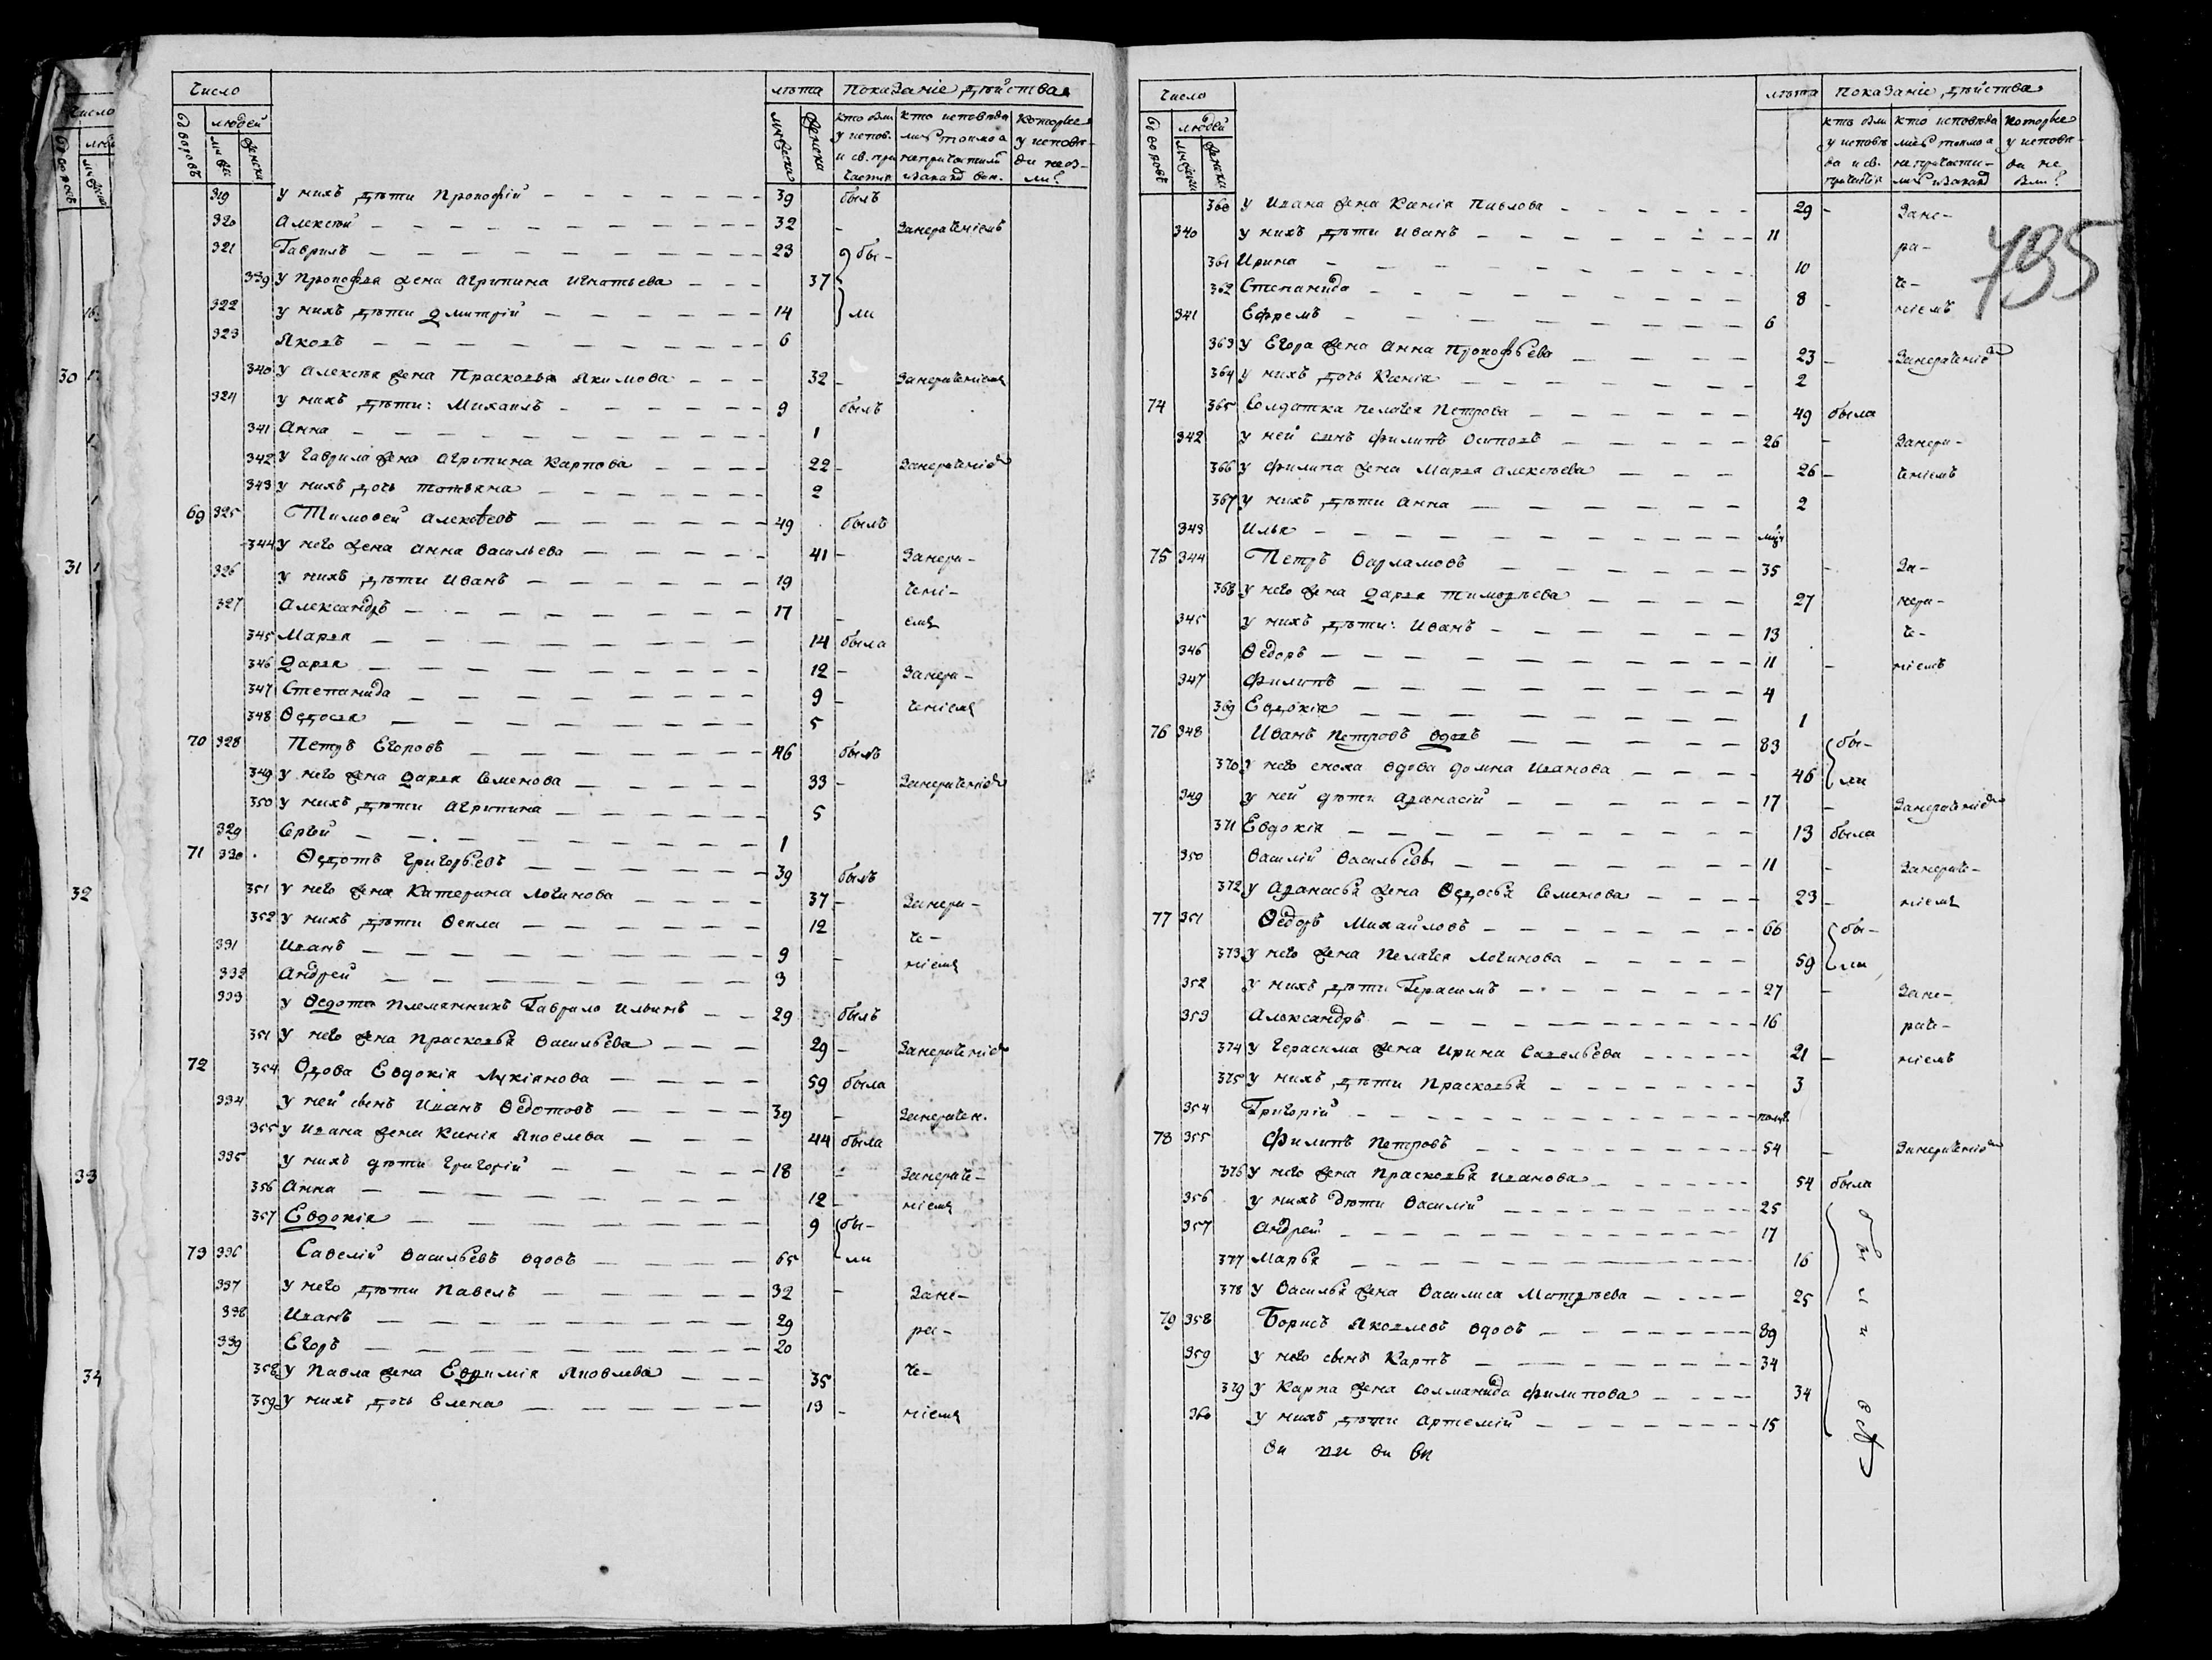 Число лѣта Показаніе дѣйства
дворовъ людей мужеска женска кто были у испов. и св. причастія кто исповѣдались токмо а не причастились и за какою вин. которые у исповѣди не были
319 у нихъ дѣти Прокофій 39 былъ
320 Алексѣй 32 - занерачениемъ
321 Гаврилъ 23 бы-
339 у Прокофья жена Агрипина Игнатьева 37
322 у нихъ дѣти Дмитрій 14 ли
323 Яковъ 6
340 у Алексѣя жена Прасковья Якимова 32 - занерачениемъ
324 у нихъ дѣти: Михаилъ 9 былъ
341 Анна 1
342 у Гаврила жена Агрипина Карпова 22 - занерачениемъ
343 у нихъ дочь Татьяна 2
69 325 Тимофей Алексѣевъ 49 былъ
344 у него жена Анна Васильева 41 - занера-
326 у нихъ дѣти Иванъ 19 чені-
327 Александръ 17 - емъ
345 Марья 14 была
346 Дарья 12 - занера-
347 Степанида 9 - ченіемъ
348 Ѳедосья 5
70 328 Петръ Егоровъ 46 былъ
349 у него жена Дарья Семенова 33 - занерачениемъ
350 у нихъ дѣти Агрипина 5
329 Сергѣй 1
71 330 Ѳедотъ Григорьевъ 39 былъ
351 у него жена Катерина Логинова 37 - занера-
352 у нихъ дѣти Ѳекла 12 че-
331 Иванъ 9 - ніемъ
332 Андрей 3
333 у Ѳедота племянникъ Гаврило Ильинъ 29 былъ
351 у него жена Прасковья Васильева 29 - занерачениемъ
72 354 Вдова Евдокія Лукіянова 59 была
334 у ней сынъ Иванъ Ѳедотовъ 39 - занерачен.
355 у Ивана жена Ксенія Яковлева 44 была
335 у нихъ дѣти Григорій 18 - занераче-
356 Анна 12 - ніемъ
357 Евдокія 9 бы-
73 336 Савелій Васильевъ вдовъ 65 ли
337 у него дѣти Павелъ 32 - зане-
338 Иванъ 29 ра-
339 Егоръ 20
358 у Павла жена Евфимія Яковлева 35 че-
359 у нихъ дочь Елена 13 - ніемъ
Число лѣта Показаніе дѣйства
дворовъ людей мужеска женска кто были у исповѣда и св. причастія кто исповѣдались токмо а не причастились и за какою которые у исповѣди не были
795
360 у Ивана жена Ксенія Павлова 29 - зане-
340 у нихъ дѣти Иванъ 11 ра-
361 Ирина 10
362 Степанида 8 - че-
341 Ефремъ 6 ніемъ
363 у Егора жена Анна Прокофьева 23 - занерачениемъ
364 у нихъ дочь Ксенія 2
74 365 Солдатка Пелагея Петрова 49 была
342 у ней сынъ Филипъ Осиповъ 26 - занера-
366 у Филипа жена Марья Алексѣева 26 - ченіемъ
367 у нихъ дѣти Анна 2
343 Илья
75 344 Петръ Варламовъ 35 - за-
368 у него жена Дарья Тимофѣева 27 нера-
345 у нихъ дѣти: Иванъ 13 че-
346 Ѳедоръ 11 - ніемъ
347 Филипъ 4
369 Евдокія 1
76 348 Иванъ Петровъ вдовъ 83 бы-
370 у него сноха вдова Домна Иванова 46 ли
349 у ней дѣти Афанасій 17 - занерачениемъ
371 Евдокія 13 была
350 Василій Васильевъ 11 - занераче-
372 у Афанасья жена Ѳедосья Семенова 23 - ніемъ
77 351 Ѳедоръ Михайловъ 66 бы-
373 у него жена Пелагея Логинова 59 ли
352 у нихъ дѣти Герасимъ 27 - зане-
353 Александръ 16 раче-
374 у Герасима жена Ирина Савельева 21 - ніемъ
375 у нихъ дѣти Прасковья 3
354 Григорій
78 355 Филипъ Петровъ 54 - занерачениемъ
376 у него жена Прасковья Иванова 54 была
356 у нихъ дѣти Василій 25
357 Андрей 17
377 Марья 16
378 у Василья жена Василиса Матвѣева 25
79 358 Борисъ Яковлевъ вдовъ 89
359 у него сынъ Карпъ 34
379 у Карпа жена Соломанида Филипова 34
360 у нихъ дѣти Артемій 15
были